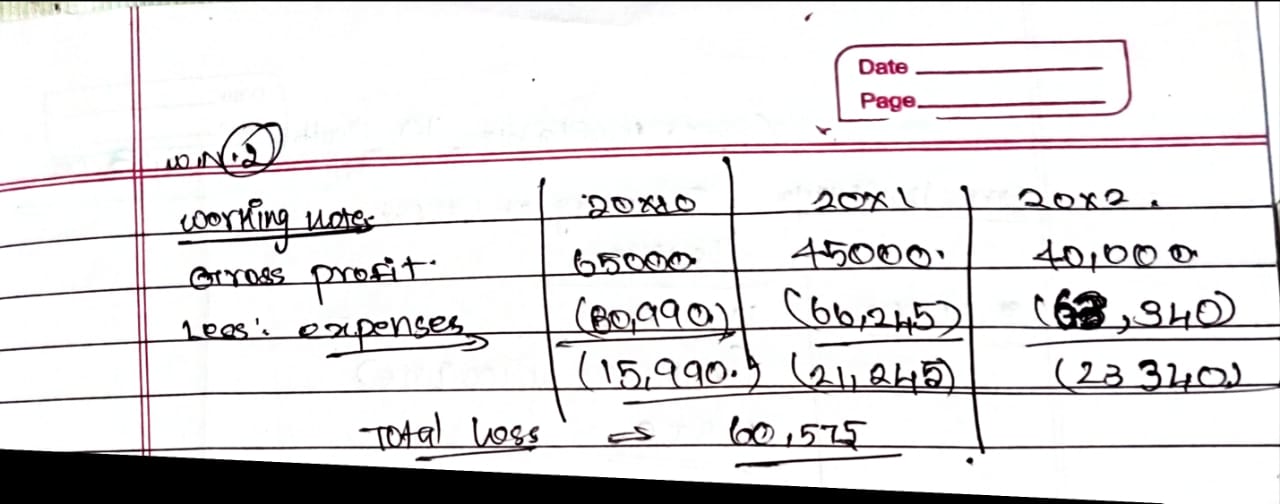 Date
Page
W.N.2
Working notes 20X10 20X1 20X2.
Gross profit. 65000 45000. 40,000
Less: expenses (80,990) (66,245) (63,340)
(15,990.) (21,245) (23340)
Total loss ⇒ 60,575